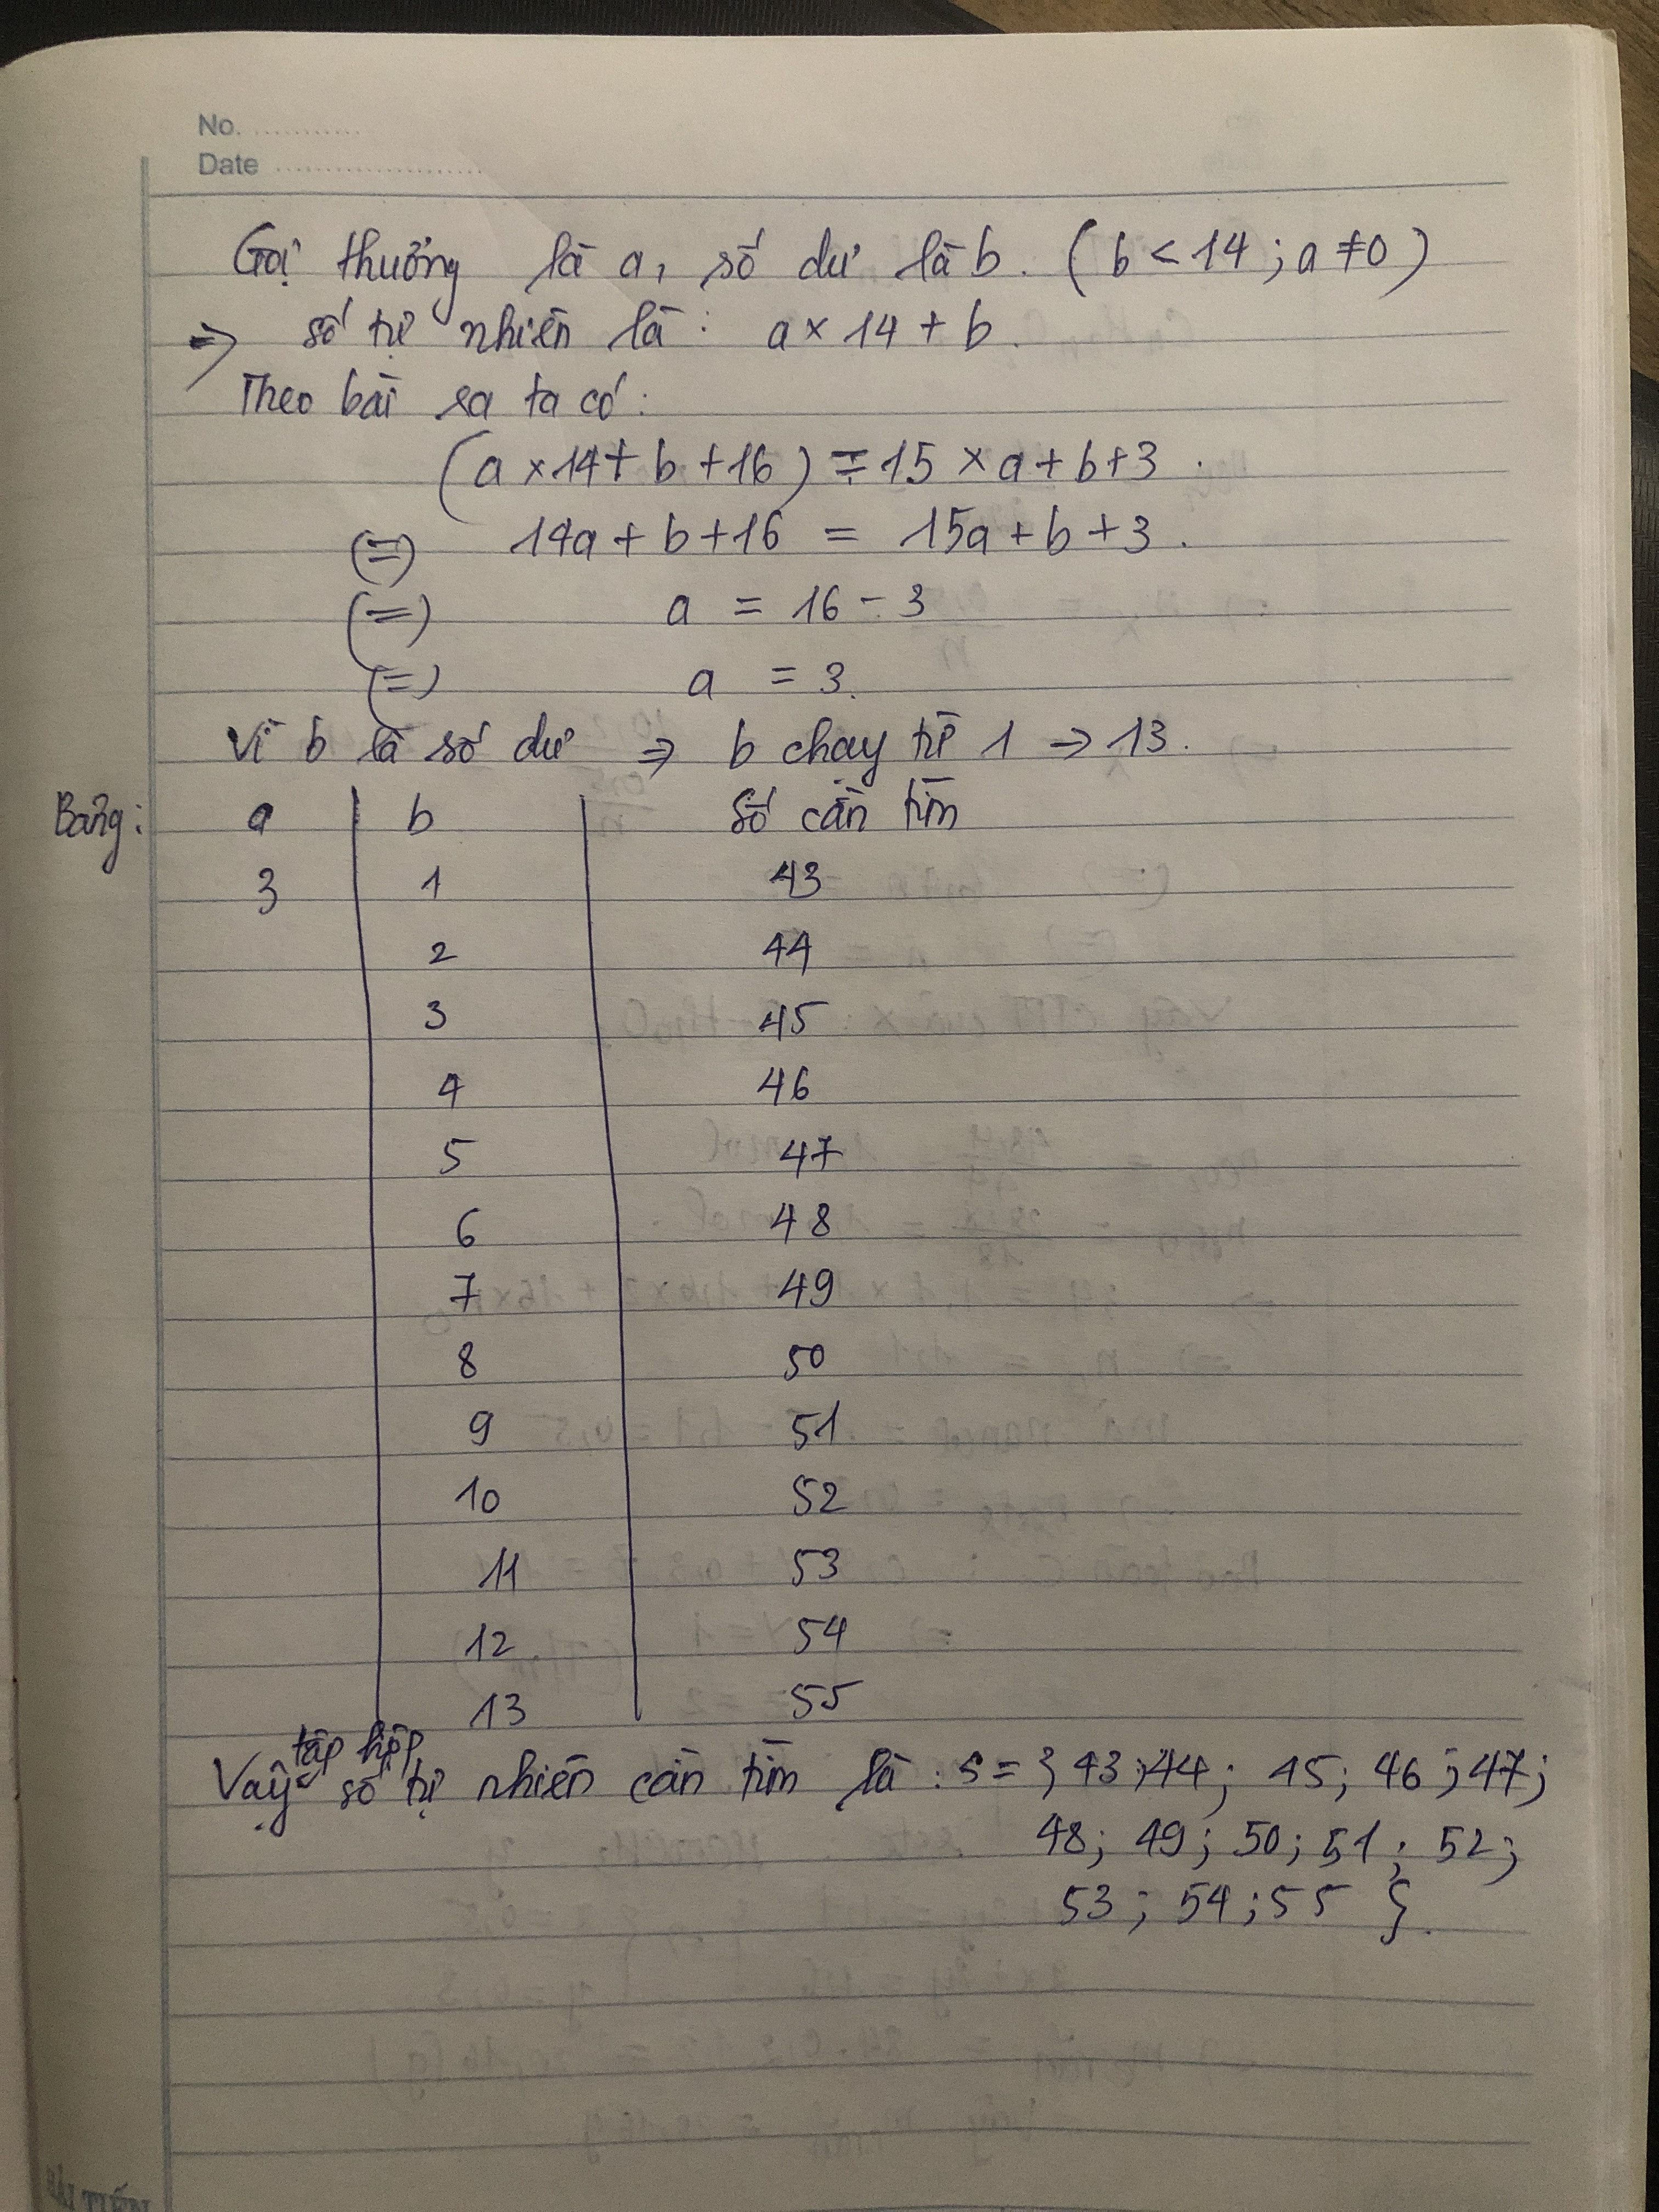 No. ...........
Date .....................
Gọi thưởng là a, số dư là b. (b < 14 ; a ≠ 0)
=> số tự nhiên là : a × 14 + b.
Theo bài ra ta có :
(a × 14 + b + 16) = 15 × a + b + 3 .
(=) 14a + b + 16 = 15a + b + 3 .
(=) a = 16 - 3
(=) a = 3.
Vì b là số dư => b chạy từ 1 -> 13.
Bảng : a b Số cần tìm
3 1 43
2 44
3 45
4 46
5 47
6 48
7 49
8 50
9 51
10 52
11 53
12 54
13 55
Vậy tập hợp số tự nhiên cần tìm là : S = { 43 ; 44 ; 45 ; 46 ; 47 ;
48 ; 49 ; 50 ; 51 ; 52 ;
53 ; 54 ; 55 }.
HẢI TIẾN